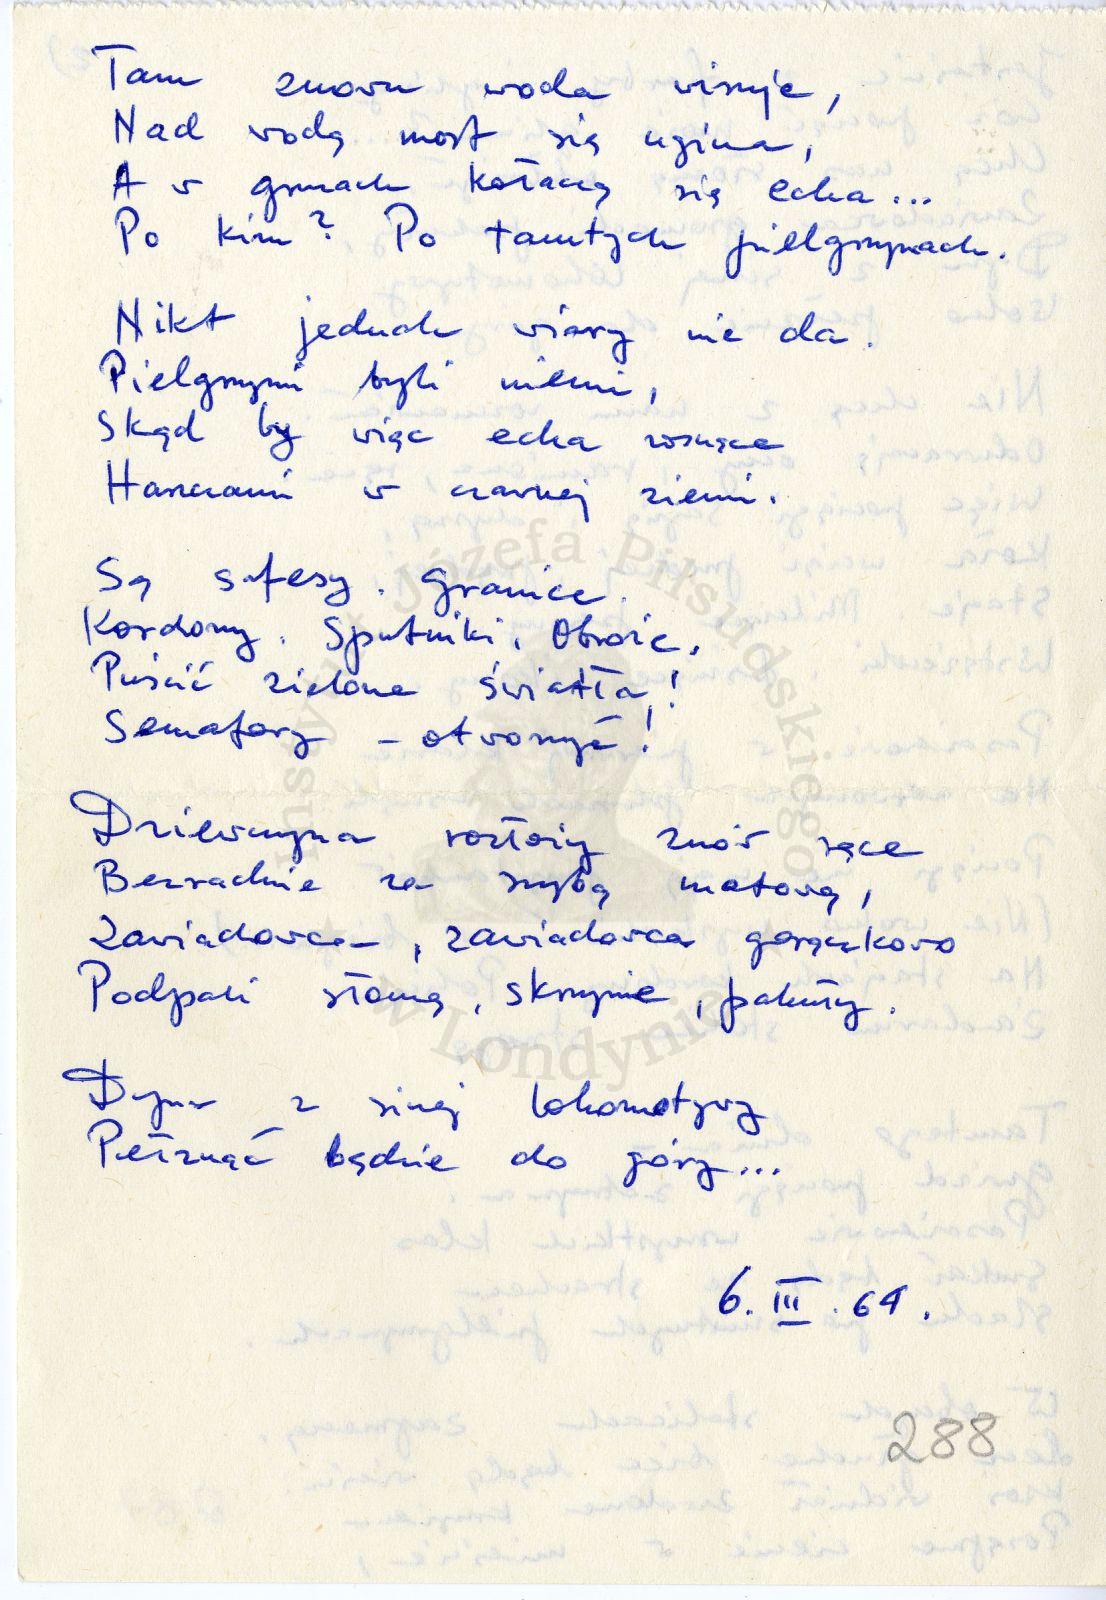 Tam znowu woda wisuje,
Nad wodą most się ugina,
A w gruzach kołaczą się echa...
Po kim? Po tamtych pielgrzymach.
Nikt jednak wiary nie da.
Pielgrzymi byli niemi,
Skąd by więc echa rosnące
Haszczami w czarnej ziemi.
Są sufesy. Granice.
Kordony. Sputniki. Obroże.
Puścić zielone światła!
Semafory – otworzyć!
Dziewczyna rozłoży znów ręce
Bezradnie za szybą matową,
Zawiadowca –, zawiadowca gorączkowo
Podpali słomę, skrzynie, pakuły.
Dym z sinej lokomotywy
Pełznąć będzie do góry...
6. III. 64.
288
Instytut Józefa Piłsudskiego
w Londynie